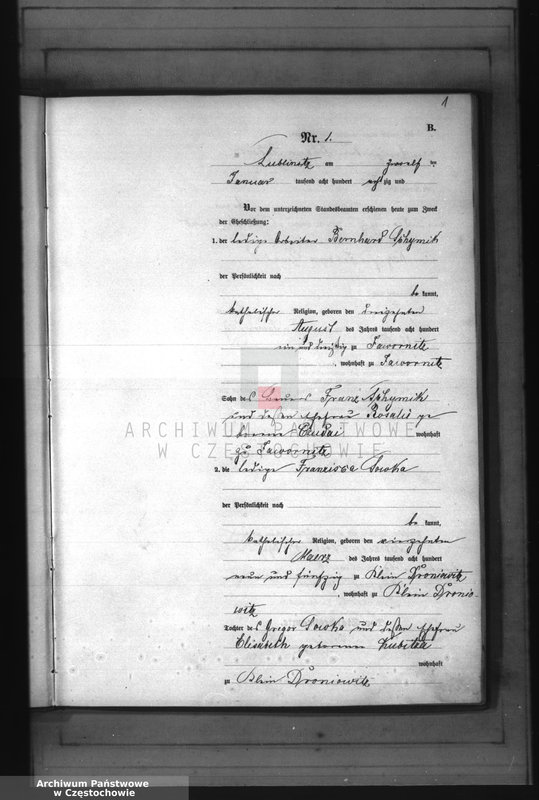 1
B.
Nr. 1.
Lublinitz am zwoelf ten
Januar tausend acht hundert achtzig und
Vor dem unterzeichneten Standesbeamten erschienen heute zum Zweck
der Eheschließung:
1. der ledige Arbeiter Bernhard
der Persönlichkeit nach
be kannt,
katholischer Religion, geboren den dreizehnten
August des Jahres tausend acht hundert
ein und dreißig zu Jawornitz
, wohnhaft zu Jawornitz
Sohn des Bauers Franz
und dessen Ehefrau Rosalie ge
borene wohnhaft
zu Jawornitz
2. die ledige Franzisca Sowka
der Persönlichkeit nach
be kannt,
katholischer Religion, geboren den vierzehnten
Maerz des Jahres tausend acht hundert
neun und fünfzig zu Klein Droniowitz
, wohnhaft zu Klein Dronio-
witz
Tochter des Grigor Sowka und dessen Ehefrau
Elisabeth geborenen
wohnhaft
zu Klein Droniowitz
ARCHIWUM PAŃSTWOWE
W CZĘSTOCHOWIE
Archiwum Państwowe
w Częstochowie